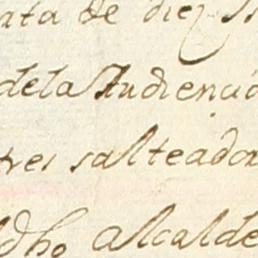 ata de diez
dela Audiencia
tres salteador
dho alcalde